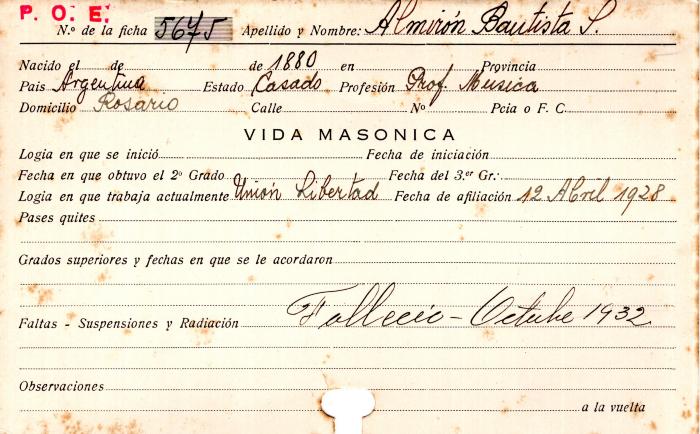 P. O. E.
N.º de la ficha 5675 Apellido y Nombre: Almirón Bautista S.
Nacido el de de 1880 en Provincia
Pais Argentina Estado Casado Profesión Prof. Musica
Domicilio Rosario Calle Nº Pcia o F. C.
VIDA MASONICA
Logia en que se inició Fecha de iniciación
Fecha en que obtuvo el 2º Grado Fecha del 3.er Gr.·.
Logia en que trabaja actualmente Unión Libertad Fecha de afiliación 12 Abril 1928
Pases quites
Grados superiores y fechas en que se le acordaron
Faltas - Suspensiones y Radiación Fallecio - Octubre 1932
Observaciones
a la vuelta